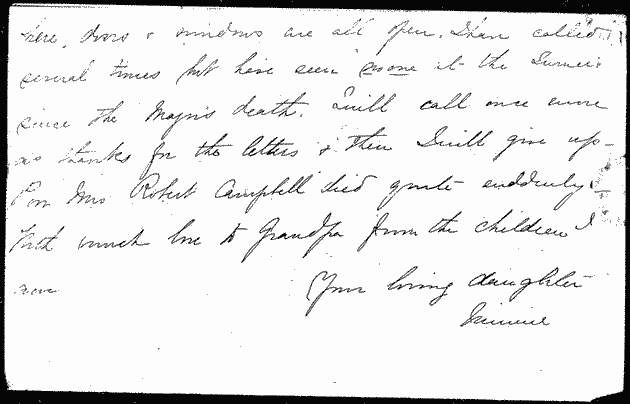 here, doors & windows are all open. I have called
several times but have seen no one at the Turner's
since the Major's death. I will call once more
as thanks for the letters & then I will give up -
Poor Mrs Robert Campbell died quite suddenly -
With much love to Grandpa from the children &
Your loving daughter
Minnie